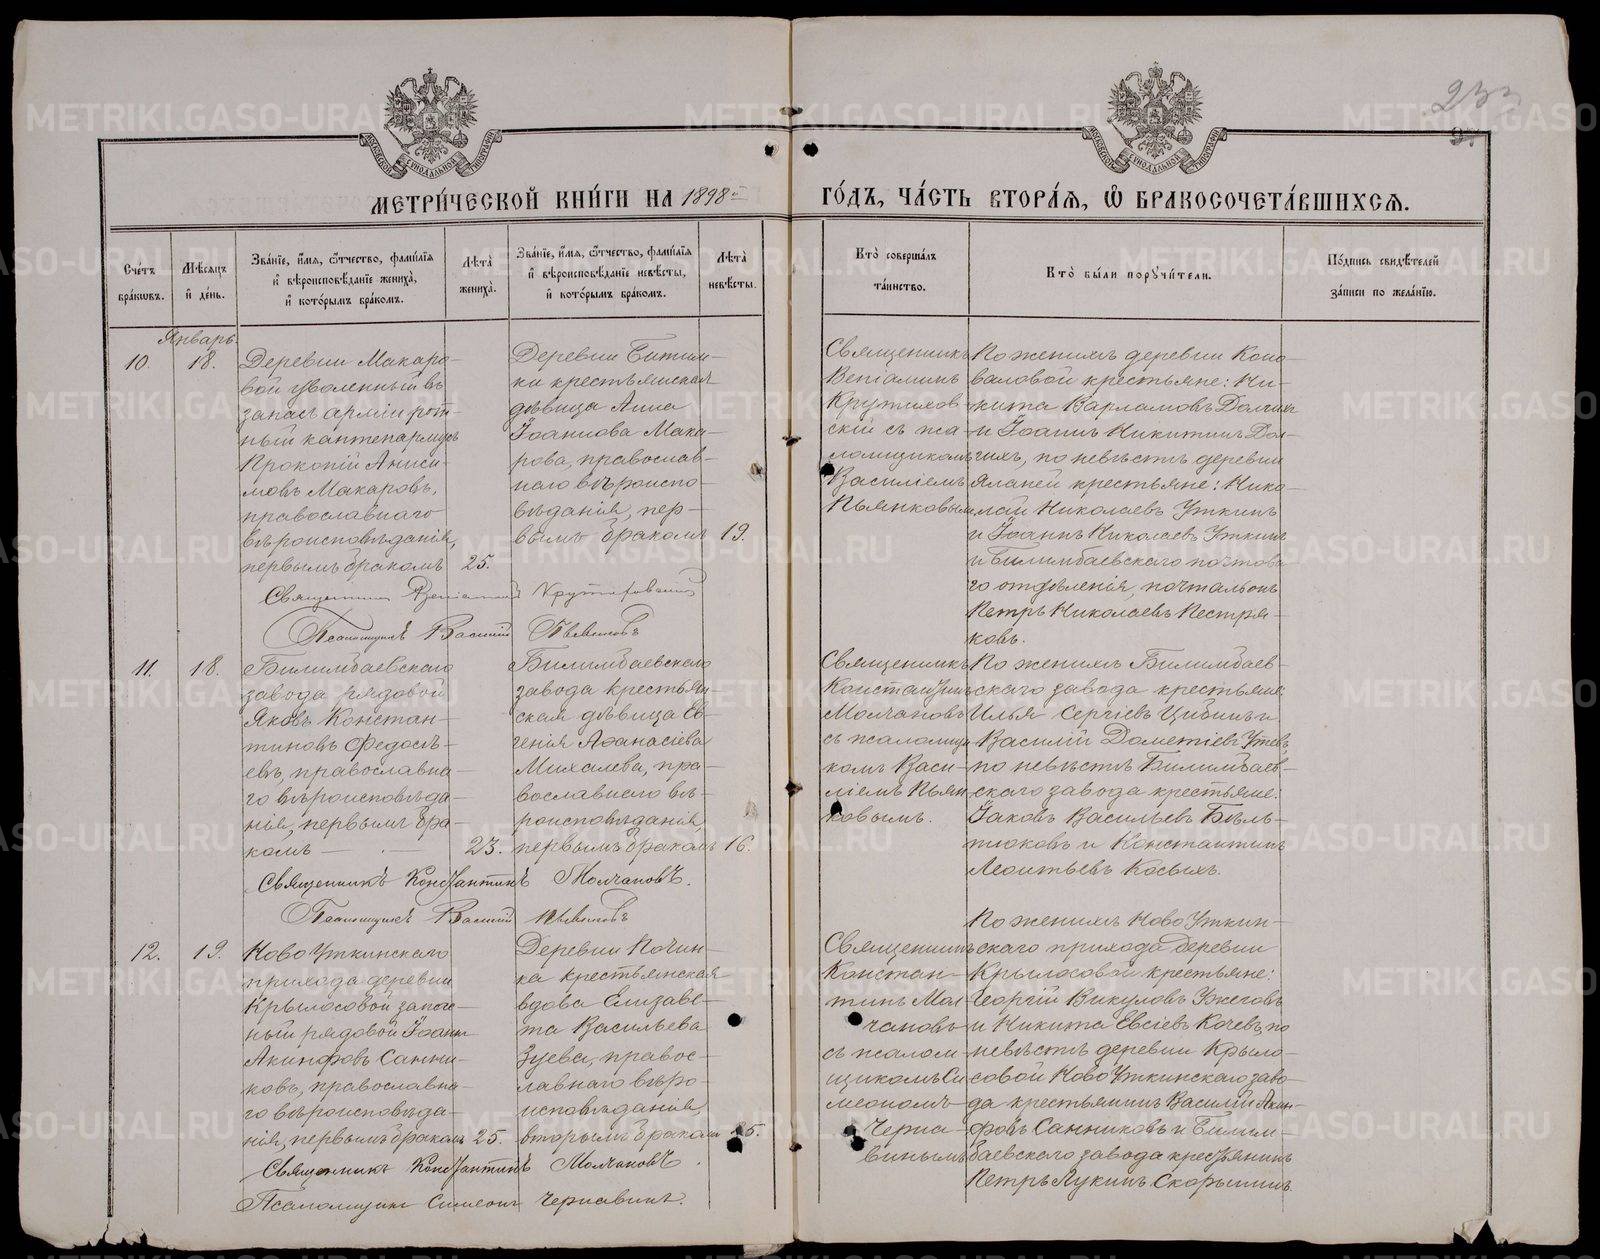 МЕТРИ́ЧЕСКОЙ КНИ́ГИ НА 1898й ГО́ДЪ, ЧА́СТЬ ВТОРА́Я, Ѡ҆ БРАКОСОЧЕТА́ВШИХСЯ.
Сче́тъ бра́ковъ.
Мѣ́сяцъ и҆ де́нь.
Зва́нїе, и҆́мя, ѻ҆́тчество, фами́лїя и҆ вѣроисповѣ́данїе жениха̀, и҆ кото́рымъ бра́комъ.
Лѣ́та жениха̀.
Зва́нїе, и҆́мя, ѻ҆́тчество, фами́лїя и҆ вѣроисповѣ́данїе невѣ́сты, и҆ кото́рымъ бра́комъ.
Лѣ́та невѣ́сты.
Кто̀ соверша́лъ та́инство.
Кто̀ бы́ли поручи́тели.
По́дпись свидѣ́телей за́писи по жела́нїю.
Январь.
10.
18.
Деревни Макаро-
вой уволенный въ
запасъ арміи рот-
ный каптенармусъ
Прокопій Аниси-
мовъ Макаровъ,
православнаго
вѣроисповѣданія,
первымъ бракомъ
25.
Деревни Битим-
ки крестьянская
дѣвица Анна
Іоаннова Мака-
рова, православ-
наго вѣроиспо-
вѣданія, пер-
вымъ бракомъ
19.
Священникъ
Веніаминъ
Крутихов-
скій съ пса-
ломщикомъ
Василіемъ
Пьянковымъ
По женихѣ деревни Коно-
валовой крестьяне: Ни-
кита Варламовъ
и Іоаннъ Никитинъ Дол-
гихъ, по невѣстѣ деревни
крестьяне: Нико-
лай Николаевъ Уткинъ
и Іоаннъ Николаевъ Уткинъ
и Билимбаевскаго почтова-
го отдѣленія, почталіонъ
Петръ Николаевъ Пестря-
ковъ.
Священникъ Веніаминъ Крутиховскій
Псаломщикъ Василій Пьянковъ
11.
18.
Билимбаевскаго
завода рядовой
Яковъ Констан-
тиновъ Федосѣ-
евъ, православна-
го вѣроисповѣда-
нія, первымъ бра-
комъ
23.
Билимбаевскаго
завода крестьян-
ская дѣвица Ев-
генія Аѳанасіева
Михалева, пра-
вославнаго вѣ-
роисповѣданія,
первымъ бракомъ
16.
Священникъ
Константинъ
Молчановъ
съ псаломщи-
комъ Васи-
ліемъ Пьян-
ковымъ.
По женихѣ Билимбаев-
скаго завода крестьяне:
Илья Сергіевъ Цибинъ и
Василій Дометіевъ
по невѣстѣ Билимбаев-
скаго завода крестьяне:
Іаковъ Васильевъ Бѣль-
тюковъ и Константинъ
Леонтьевъ Косыхъ.
Священникъ Константинъ Молчановъ.
Псаломщикъ Василій Пьянковъ
12.
19.
Ново Уткинскаго
прихода деревни
Крылосовой запас-
ный рядовой Іоаннъ
Акинфовъ Санни-
ковъ, православна-
го вѣроисповѣда-
нія, первымъ бракомъ
25.
Деревни Почин-
ка крестьянская
вдова Елизаве-
та Васильева
Зуева, правос-
лавнаго вѣро-
исповѣданія,
вторымъ бракомъ
25.
Священникъ
Констан-
тинъ Мол-
чановъ
съ псалом-
щикомъ Си-
меономъ
Черна-
винымъ
По женихѣ Ново Уткин-
скаго прихода деревни
Крылосовой крестьяне:
Георгій Викуловъ Ужеговъ
и Никита Евсіевъ Кочевъ, по
невѣстѣ деревни Крыло-
совой Ново Уткинскаго заво-
да крестьянинъ Василій Акин-
фовъ Санниковъ и Билим-
баевскаго завода крестьянинъ
Петръ Лукинъ Скорынинъ.
Священникъ Константинъ Молчановъ.
Псаломщикъ Симеонъ Чернавинъ.